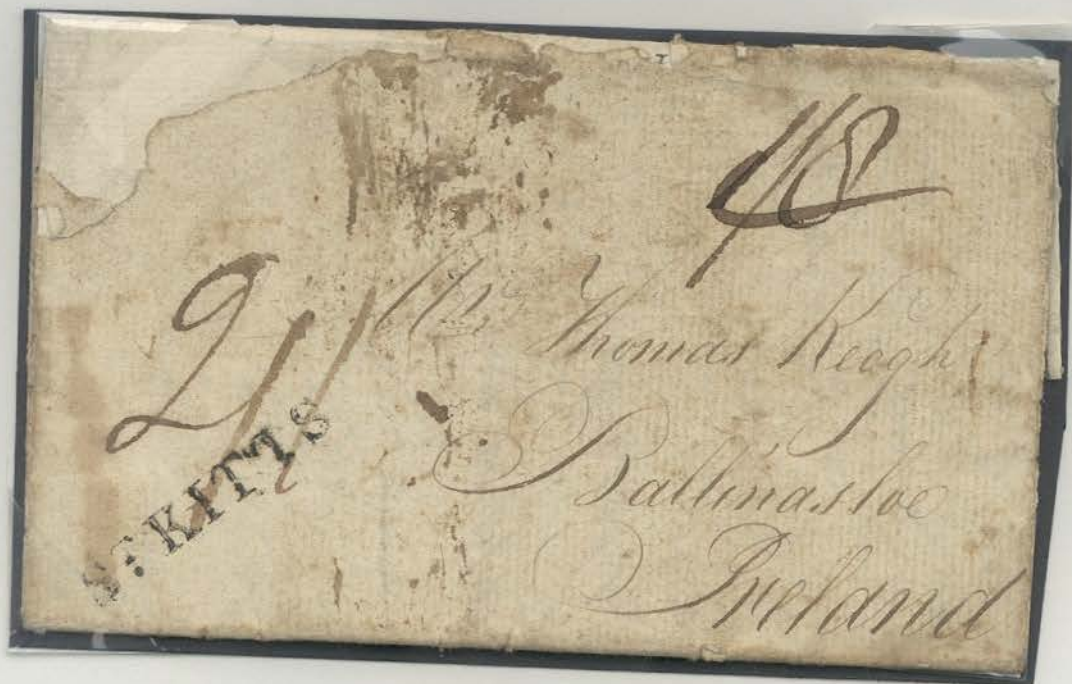 1/8
2/1
Mr. Thomas Keogh
Ballinasloe
Ireland
ST. KITTS